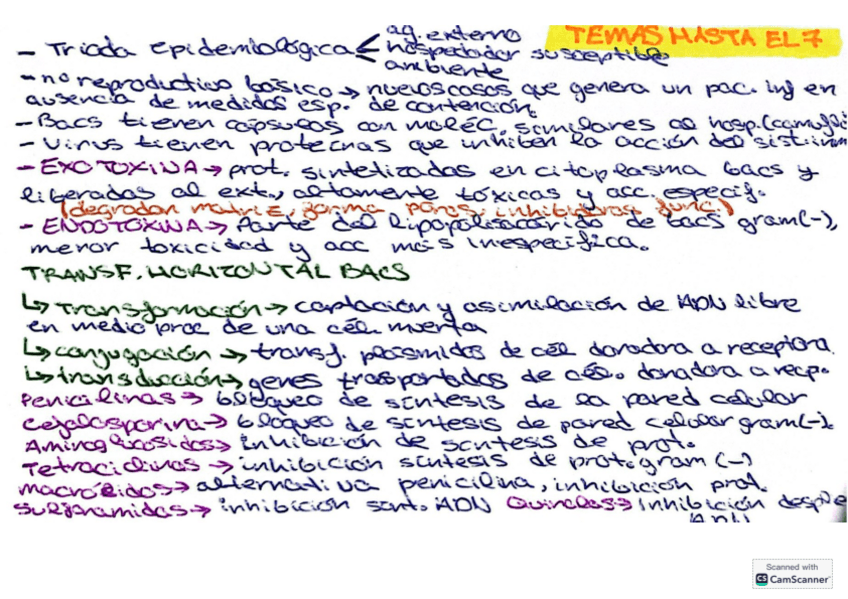 TEMAS HASTA EL 7
- Triada epidemiológica < ag. externo
hospedador susceptible
ambiente
- no reproductivo básico → nuevos casos que genera un pac. inf en
ausencia de medidas esp. de contención.
- Bacs tienen cápsulas con moléc. similares al hosp. (camufl
- Virus tienen proteínas que inhiben la acción del sist. inm
- EXOTOXINA → prot. sintetizadas en citoplasma bacs y
liberadas al ext., altamente tóxicas y acc. especif.
(degradan matriz, forma poros, inhibidoras func.)
- ENDOTOXINA → Parte del lipopolisacárido de bacs gram(-),
menor toxicidad y acc más inespecífica.
TRANSF. HORIZONTAL BACS
↳ Transformación → captación y asimilación de ADN libre
en medio proc de una cél. muerta
↳ conjugación → transf. plásmidos de cél donadora a receptora.
↳ transducción → genes trasportados de cél. donadora a recp.
Penicilinas → bloqueo de síntesis de la pared celular
Cefalosporina → bloqueo de síntesis de pared celular gram(-).
Aminoglucosidos → inhibición de síntesis de prot.
Tetraciclinas → inhibición síntesis de prot. gram (-)
macrólidos → alternativa penicilina, inhibición prot.
sulfonamidas → inhibición sínt. ADN Quinolas → Inhibición desple
ADN
Scanned with
CS CamScanner